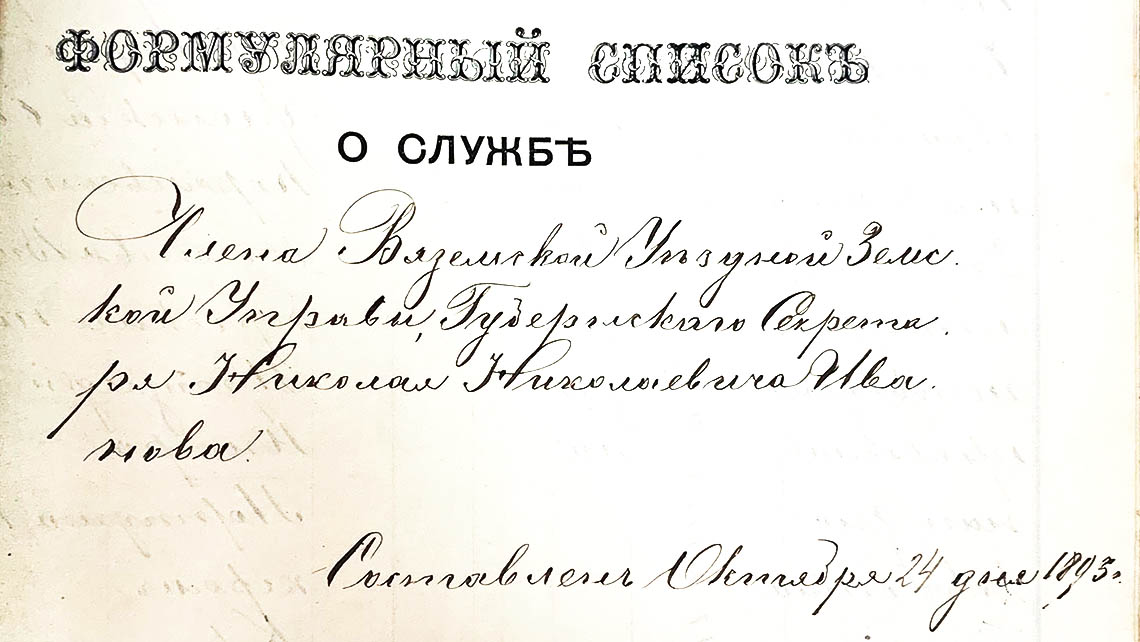 ФОРМУЛЯРНЫЙ СПИСОКЪ
О СЛУЖБѢ
Члена Вяземской Уѣздной Земс
кой Управы, Губернскаго Секрета
ря Николая Николаевича Ива
нова.
Составленъ Октября 24 дня 1893 г.